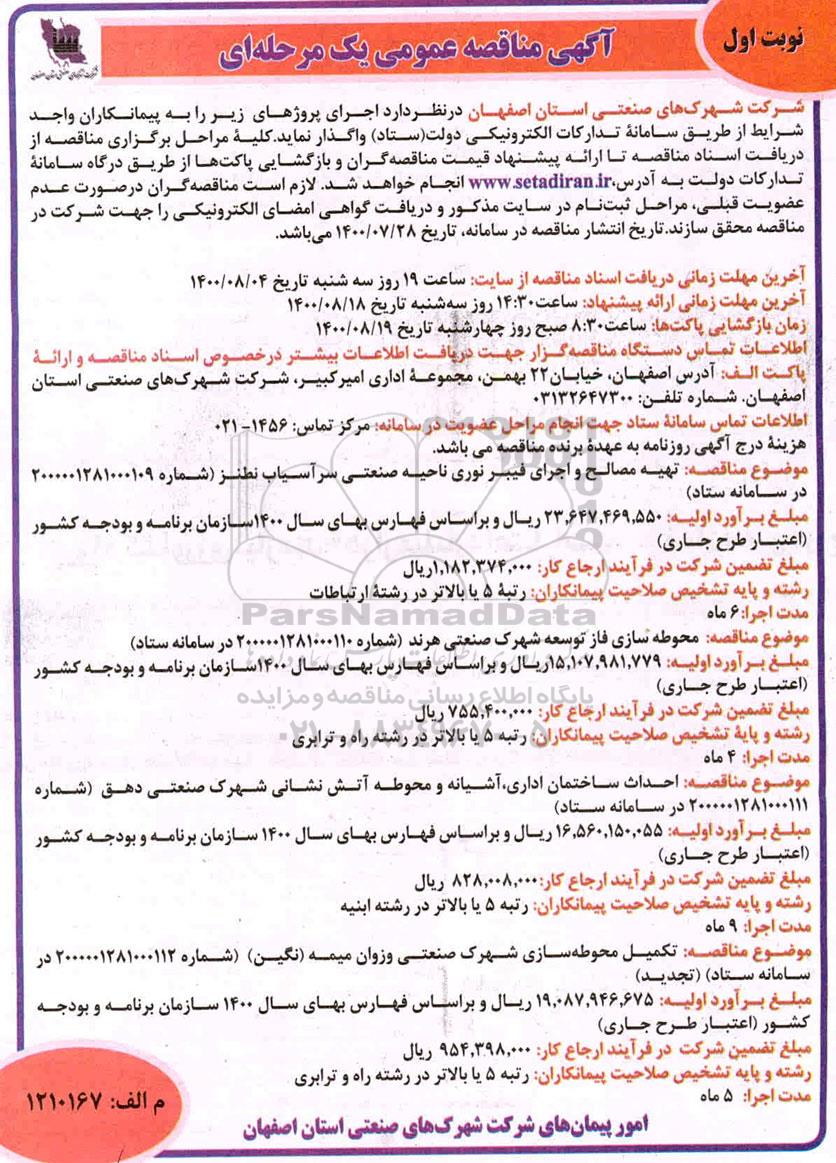 نوبت اول
آگهی مناقصه عمومی یک مرحله‌ای
شرکت شهرک‌های صنعتی استان اصفهان درنظردارد اجرای پروژهای زیر را به پیمانکاران واجد
شرایط از طریق سامانهٔ تدارکات الکترونیکی دولت(ستاد) واگذار نماید.کلیهٔ مراحل برگزاری مناقصه از
دریافت اسناد مناقصه تا ارائه پیشنهاد قیمت مناقصه‌گران و بازگشایی پاکت‌ها از طریق درگاه سامانهٔ
تدارکات دولت به آدرس،www.setadiran.ir انجام خواهد شد. لازم است مناقصه‌گران درصورت عدم
عضویت قبلی، مراحل ثبت‌نام در سایت مذکور و دریافت گواهی امضای الکترونیکی را جهت شرکت در
مناقصه محقق سازند.تاریخ انتشار مناقصه در سامانه، تاریخ ۱۴۰۰/۰۷/۲۸ می‌باشد.
آخرین مهلت زمانی دریافت اسناد مناقصه از سایت: ساعت ۱۹ روز سه شنبه تاریخ ۱۴۰۰/۰۸/۰۴
آخرین مهلت زمانی ارائه پیشنهاد: ساعت۱۴:۳۰ روز سه‌شنبه تاریخ ۱۴۰۰/۰۸/۱۸
زمان بازگشایی پاکت‌ها: ساعت۸:۳۰ صبح روز چهارشنبه تاریخ ۱۴۰۰/۰۸/۱۹
اطلاعات تماس دستگاه مناقصه‌گزار جهت دریافت اطلاعات بیشتر درخصوص اسناد مناقصه و ارائهٔ
پاکت الف: آدرس اصفهان، خیابان۲۲ بهمن، مجموعهٔ اداری امیرکبیر، شرکت شهرک‌های صنعتی استان
اصفهان. شماره تلفن: ۰۳۱۳۲۶۴۷۳۰۰
اطلاعات تماس سامانهٔ ستاد جهت انجام مراحل عضویت در سامانه: مرکز تماس: ۱۴۵۶-۰۲۱
هزینهٔ درج آگهی روزنامه به عهدهٔ برنده مناقصه می باشد.
موضوع مناقصه: تهیه مصالح و اجرای فیبر نوری ناحیه صنعتی سرآسیاب نطنز (شماره ۲۰۰۰۰۰۱۲۸۱۰۰۰۱۰۹
در سامانه ستاد)
مبلغ برآورد اولیه: ۲۳,۶۴۷,۴۶۹,۵۵۰ ریال و براساس فهارس بهای سال ۱۴۰۰سازمان برنامه و بودجه کشور
(اعتبار طرح جاری)
مبلغ تضمین شرکت در فرآیند ارجاع کار: ۱,۱۸۲,۳۷۴,۰۰۰ریال
رشته و پایه تشخیص صلاحیت پیمانکاران: رتبهٔ ۵ یا بالاتر در رشتهٔ ارتباطات
مدت اجرا: ۶ ماه
موضوع مناقصه: محوطه سازی فاز توسعه شهرک صنعتی هرند (شماره ۲۰۰۰۰۰۱۲۸۱۰۰۰۱۱۰ در سامانه ستاد)
مبلغ برآورد اولیه: ۱۵,۱۰۷,۹۸۱,۷۷۹ریال و براساس فهارس بهای سال ۱۴۰۰سازمان برنامه و بودجه کشور
(اعتبار طرح جاری)
مبلغ تضمین شرکت در فرآیند ارجاع کار: ۷۵۵,۴۰۰,۰۰۰ ریال
رشته و پایهٔ تشخیص صلاحیت پیمانکاران: رتبه ۵ یا بالاتر در رشته راه و ترابری
مدت اجرا: ۴ ماه
موضوع مناقصه: احداث ساختمان اداری،آشیانه و محوطه آتش نشانی شهرک صنعتی دهق (شماره
۲۰۰۰۰۰۱۲۸۱۰۰۰۱۱۱ در سامانه ستاد)
مبلغ برآورد اولیه: ۱۶,۵۶۰,۱۵۰,۰۵۵ ریال و براساس فهارس بهای سال ۱۴۰۰ سازمان برنامه و بودجه کشور
(اعتبار طرح جاری)
مبلغ تضمین شرکت در فرآیند ارجاع کار: ۸۲۸,۰۰۸,۰۰۰ ریال
رشته و پایه تشخیص صلاحیت پیمانکاران: رتبه ۵ یا بالاتر در رشته ابنیه
مدت اجرا: ۹ ماه
موضوع مناقصه: تکمیل محوطه‌سازی شهرک صنعتی وزوان میمه (نگین) (شماره ۲۰۰۰۰۰۱۲۸۱۰۰۰۱۱۲ در
سامانه ستاد) (تجدید)
مبلغ برآورد اولیه: ۱۹,۰۸۷,۹۴۶,۶۷۵ ریال و براساس فهارس بهای سال ۱۴۰۰ سازمان برنامه و بودجه
کشور (اعتبار طرح جاری)
مبلغ تضمین شرکت در فرآیند ارجاع کار: ۹۵۴,۳۹۸,۰۰۰ ریال
رشته و پایه تشخیص صلاحیت پیمانکاران: رتبه ۵ یا بالاتر در رشته راه و ترابری
مدت اجرا: ۵ ماه
م الف: ۱۲۱۰۱۶۷
امور پیمان‌های شرکت شهرک‌های صنعتی استان اصفهان
ParsNamadData
پایگاه اطلاع رسانی مناقصه و مزایده
۰۲۱-۸۸۳۴۹۶۷۰-۵